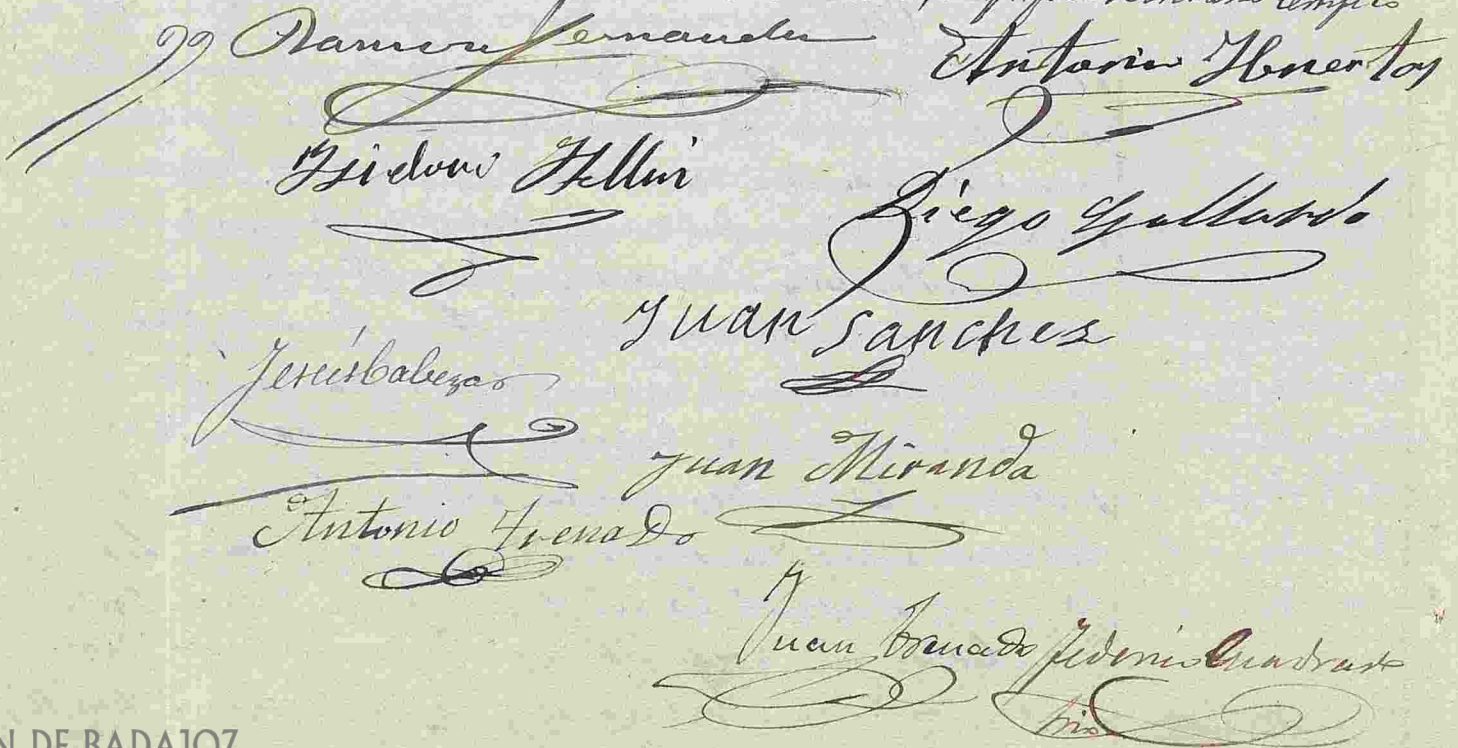 Ramon Fernandez
Antonio Huertas
Isidoro Hellin
Diego Gallardo
Juan Sanchez
Jesús Cabezas
Juan Miranda
Antonio Trenado
Juan Trenado Federico Cuadrado
N DE BADAJOZ